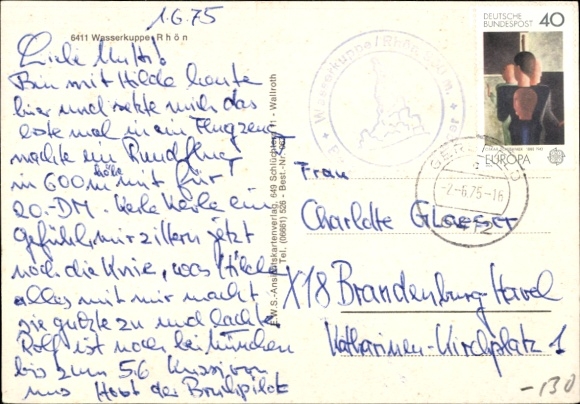 1.6.75
6411 Wasserkuppe / Rhön
Liebe Mutti!
Bin mit Hilde heute
hier und setzte mich das
erste mal in ein Flugzeug
machte ein Rundflug
in 600 m höhe mit für
20.-DM. Kerle Kerle ein
Gefühl, mir zittern jetzt
noch die Knie, was Hilde
alles mit mir macht
sie guckte zu und lachte
Rolf ist noch bei München
bis zum 5.6. Kussi von
uns Horst der Bruchpilot
E.W.S.-Ansichtskartenverlag, 649 Schlüchtern 11 - Wallroth
Tel. (06661) 526 - Best.-Nr.
Wasserkuppe / Rhön 950 m.
DEUTSCHE
BUNDESPOST
40
EUROPA
CEPT
GERSFELD
-2.-6.75-16
Frau
Charlotte Glaeser
X18 Brandenburg-Havel
Katharinen-Kirchplatz 1
-130